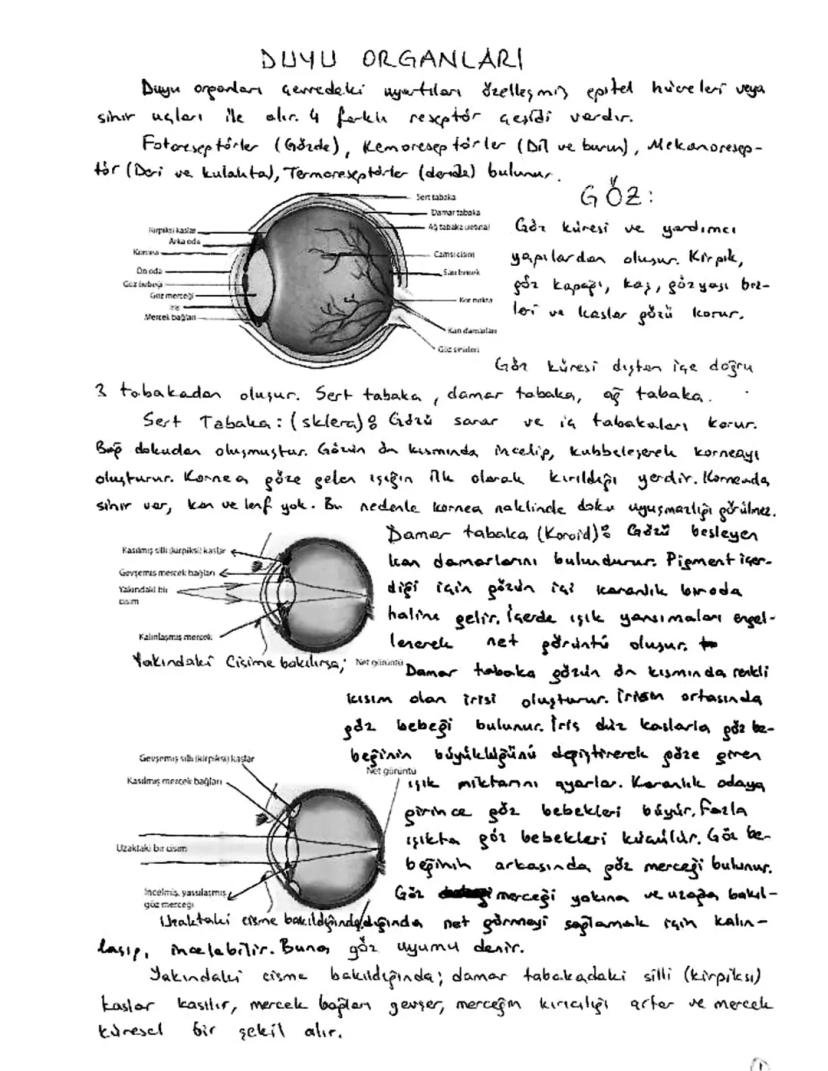 DUYU ORGANLARI
Duyu organları çevredeki uyartıları özelleşmiş epitel hücreleri veya
sinir uçları ile alır. 4 farklı reseptör çeşidi vardır.
Fotoreseptörler (Gözde), Kemoreseptörler (Dil ve burun), Mekanoresep-
tör (Deri ve kulakta), Termoreseptörler (deride) bulunur.
GÖZ:
Sert tabaka
Damar tabaka
Ağ tabaka (retina)
Camsı cisim
Sarı benek
Kör nokta
Kan damarları
Göz sinirleri
Kirpiksi kaslar
Arka oda
Kornea
Ön oda
Göz bebeği
Göz merceği
İris
Mercek bağları
Göz küresi ve yardımcı
yapılardan oluşur. Kirpik,
göz kapağı, kaş, gözyaşı bez-
leri ve kaslar gözü korur.
Göz küresi dıştan içe doğru
3 tabakadan oluşur. Sert tabaka, damar tabaka, ağ tabaka.
Sert Tabaka: (sklera): Gözü sarar ve iç tabakaları korur.
Bağ dokudan oluşmuştur. Gözün ön kısmında incelip, kubbeleşerek korneayı
oluşturur. Kornea göze gelen ışığın ilk olarak kırıldığı yerdir. Korneada
sinir var, kan ve lenf yok. Bu nedenle kornea naklinde doku uyuşmazlığı görülmez.
Damar tabaka (Koroid): Gözü besleyen
kan damarlarını bulundurur. Pigment içer-
diği için gözün içi karanlık bir oda
haline gelir. İçerde ışık yansımaları engel-
lenerek net görüntü oluşur.
Kasılmış silli (kirpiksi) kaslar
Gevşemiş mercek bağları
Yakındaki bir
cisim
Kalınlaşmış mercek
Net görüntü
Yakındaki Cisime bakılırsa;
Damar tabaka gözün ön kısmında renkli
kısım olan irisi oluşturur. İrisin ortasında
göz bebeği bulunur. İris düz kaslarla göz be-
beğinin büyüklüğünü değiştirerek göze giren
ışık miktarını ayarlar. Karanlık odaya
girince göz bebekleri büyür. Fazla
ışıkta göz bebekleri küçülür. Göz be-
beğinin arkasında göz merceği bulunur.
Göz merceği yakına ve uzağa bakıl-
dığında net görmeyi sağlamak için kalın-
laşıp, incelebilir. Buna göz uyumu denir.
Gevşemiş silli (kirpiksi) kaslar
Kasılmış mercek bağları
Net görüntü
Uzaktaki bir cisim
İncelmiş, yassılaşmış
göz merceği
Uzaktaki cisme bakıldığında
Yakındaki cisme bakıldığında; damar tabakadaki silli (kirpiksi)
kaslar kasılır, mercek bağları gevşer, merceğin kırıcılığı artar ve mercek
küresel bir şekil alır.
1